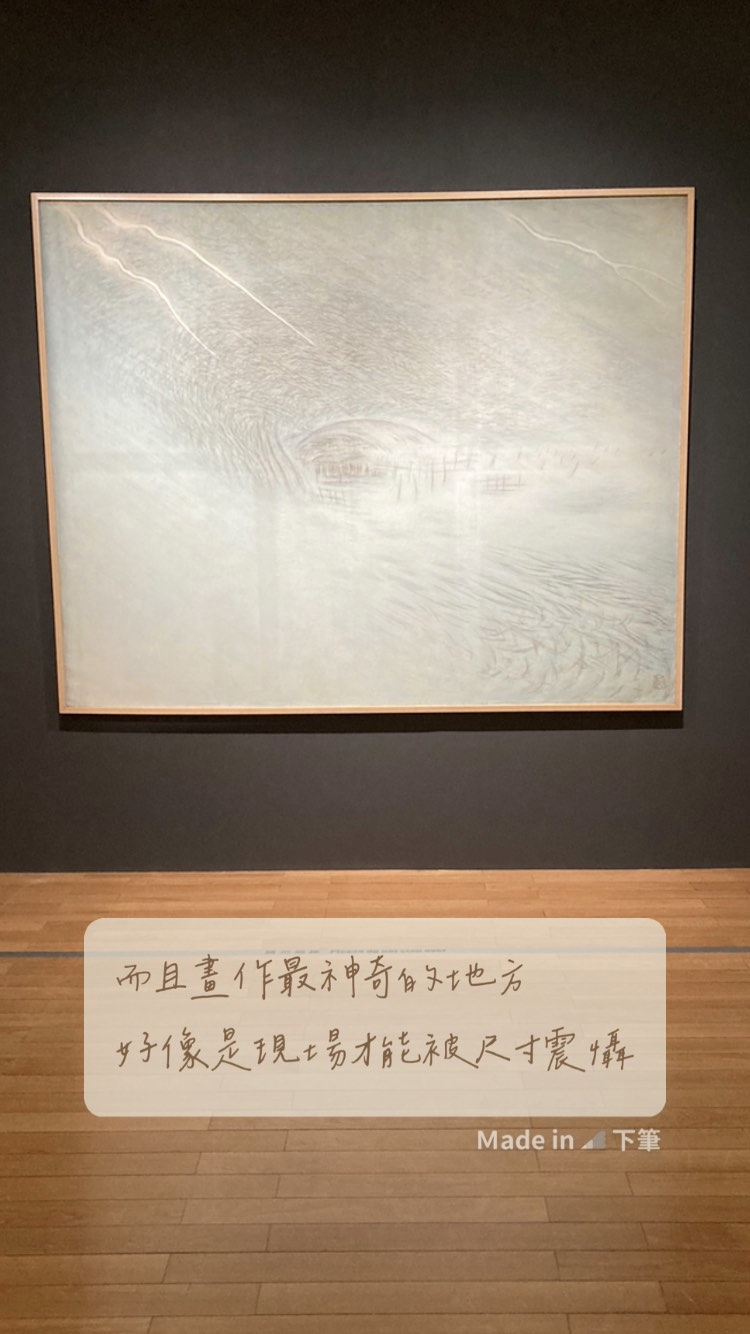 而且畫作最神奇的地方
好像是現場才能被尺寸震懾
Made in 下筆